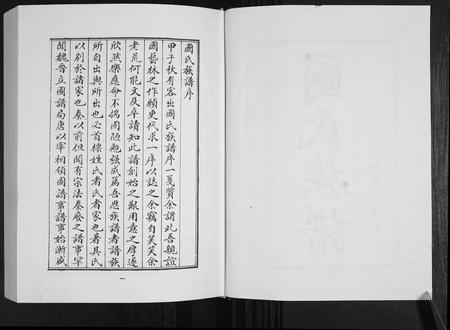 國氏族譜序
甲子秋有客出國氏族譜序一箋質余謂此吾親誼
國藝林之作願更代求一序以誌之余竊自笑笑余
老荒何能文及卒讀知此譜創始之艱用意之厚遂
欣然樂應命不揣固陋勉強成篇吾思族譜者譜族
所自出與所出也必首標姓氏者氏者家也著其氏
以別於諸家也秦以前但聞有宗法秦廢之譜事罕
聞魏晉立圖譜局唐以宰相領圖譜事譜事始漸盛
一
國氏族譜